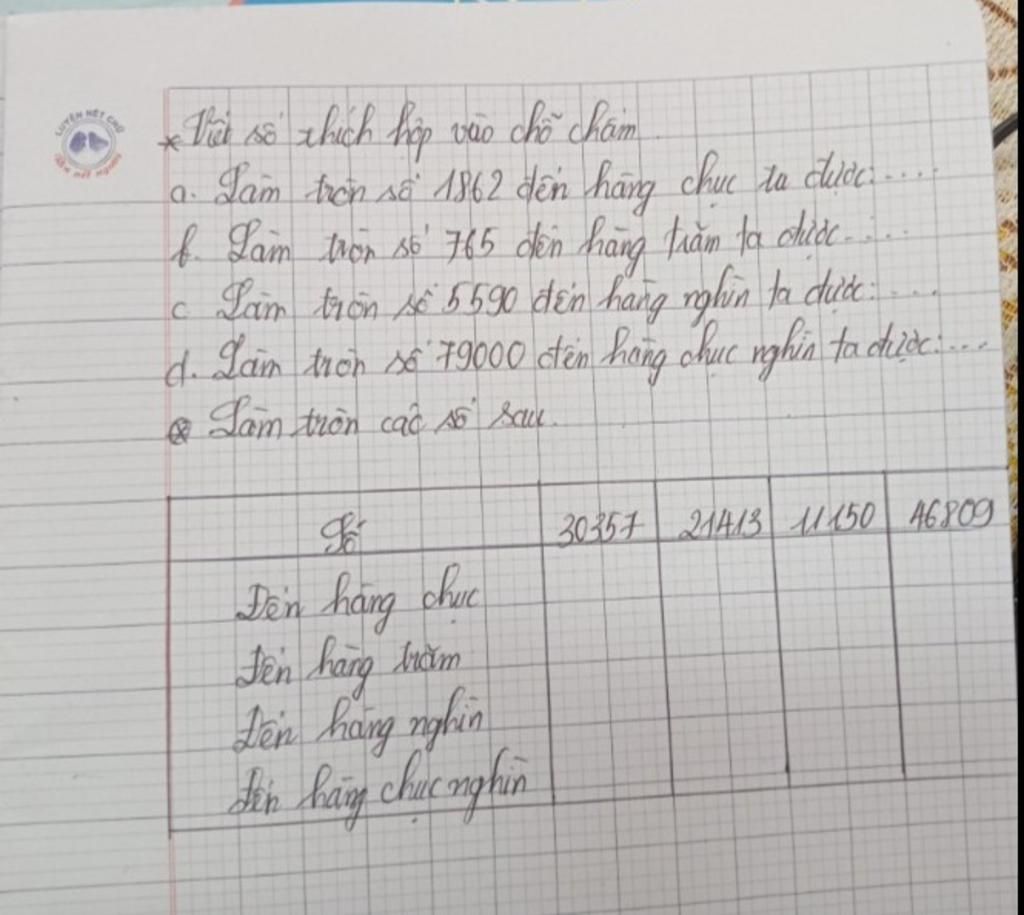 LUYỆN NÉT CHỮ
* Viết số thích hợp vào chỗ chấm
a. Làm tròn số 1862 đến hàng chục ta được:....
b. Làm tròn số 765 đến hàng trăm ta được.....
c Làm tròn số 5590 đến hàng nghìn ta được:....
d. Làm tròn số 79000 đến hàng chục nghìn ta được:....
Làm tròn các số sau.
Số 30357 21413 11150 46809
Đến hàng chục
Đến hàng trăm
Đến hàng nghìn
Đến hàng chục nghìn